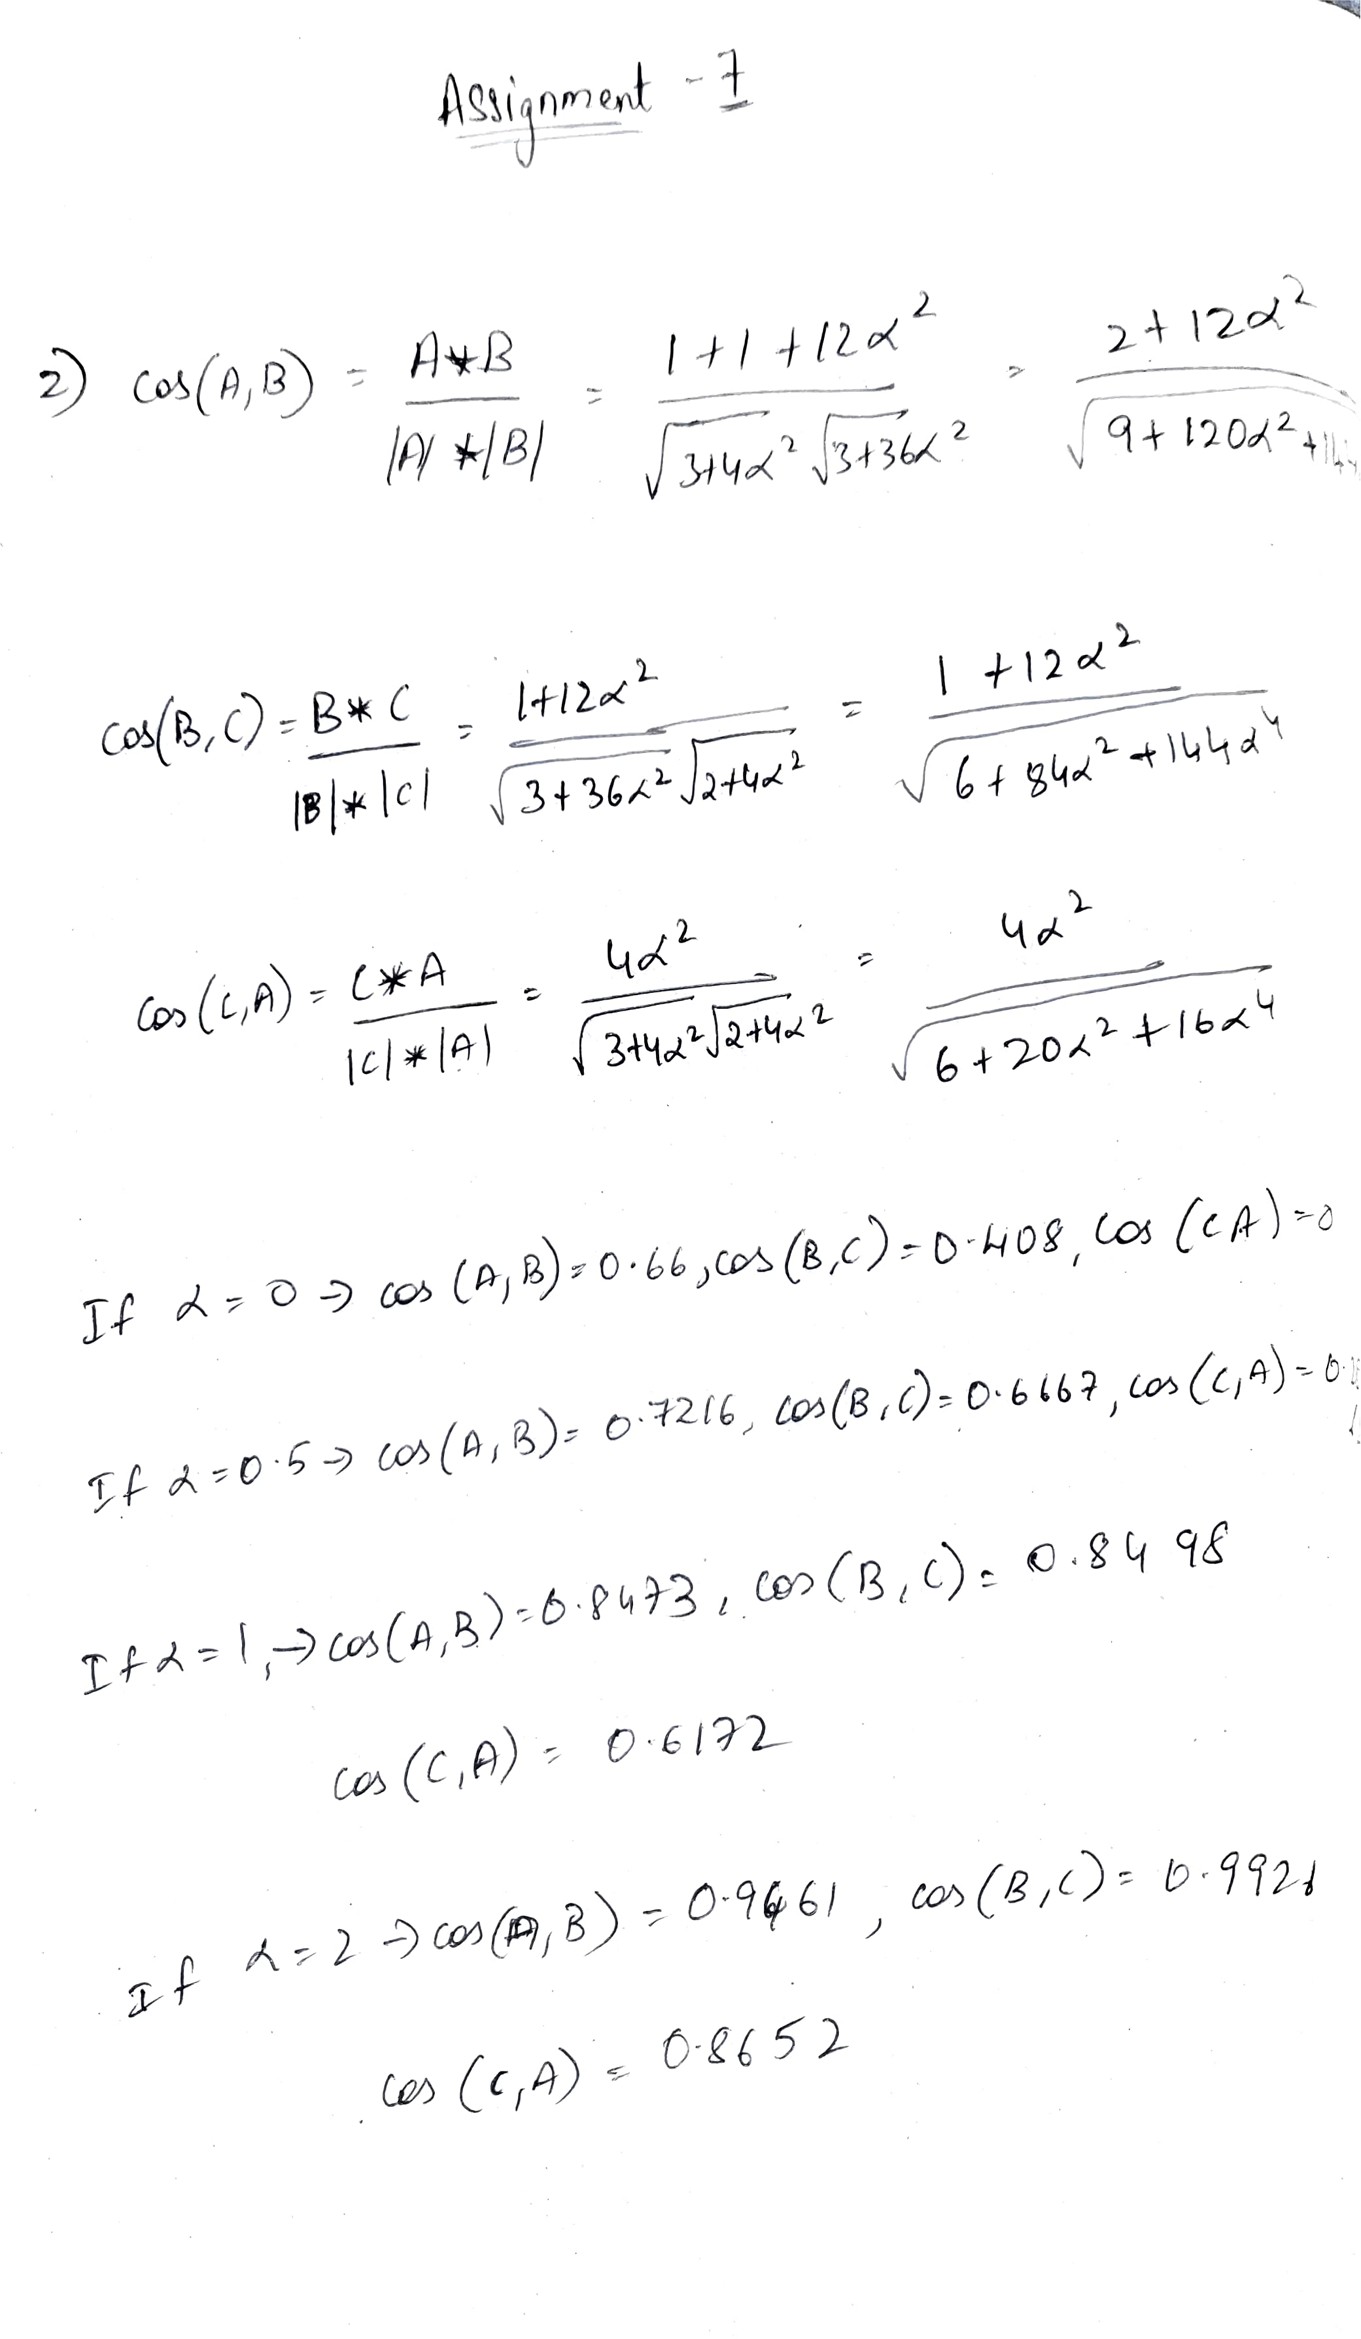 Assignment - 7
2) cos(A,B) = A*B / |A|*|B| = 1+1+12α² / √3+4α² √3+36α² = 2+12α² / √9+120α²+
cos(B,C) = B*C / |B|*|C| = 1+12α² / √3+36α² √2+4α² = 1+12α² / √6+84α²+144α⁴
cos(C,A) = C*A / |C|*|A| = 4α² / √3+4α² √2+4α² = 4α² / √6+20α²+16α⁴
If α=0 → cos(A,B)=0.66, cos(B,C)=0.408, cos(CA)=0
If α=0.5 → cos(A,B)=0.7216, cos(B,C)=0.6667, cos(C,A)=0.
If α=1, → cos(A,B)=0.8473, cos(B,C)=0.8498
cos(C,A)=0.6172
If α=2 → cos(A,B)=0.9461, cos(B,C)=0.9921
cos(C,A)=0.8652